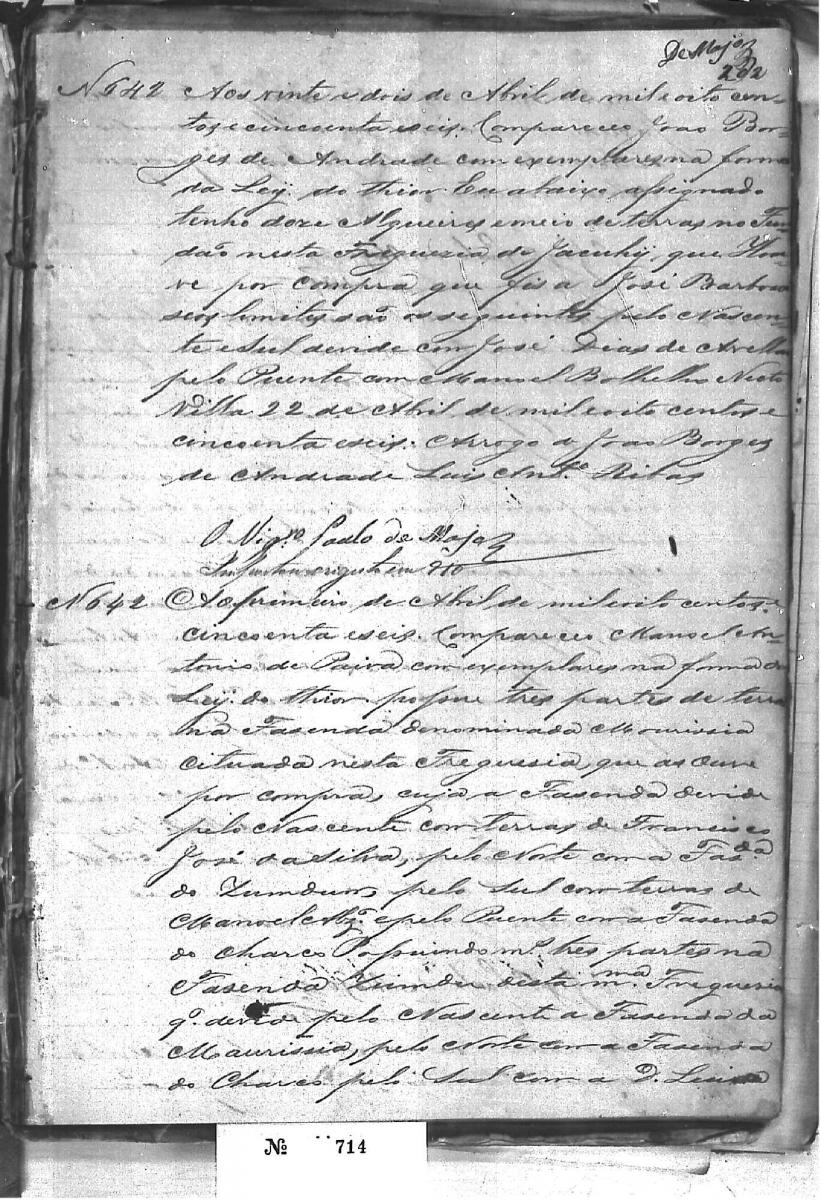 De Maja
202
N 642 Aos vinte e dois de Abril de mil e oito cen-
tos e cincoenta e seis. Compareceo Joao Bor-
ges de Andrade com exemplares na forma
da Ley do thior Eu abaixo assignado
tenho doze Alqueires e meio de terras no Fun-
dão nesta Freguezia de Jacuhy, que Hou-
ve por compra que fis a José Barboza
seos limites são os seguintes pelo Nascen-
te e Sul devide com José Dias de Avellar
pelo Puente com Manoel Bothelho Neto
Villa 22 de Abril de mil e oito centos e
cincoenta e seis. Arrogo de Joao Borges
de Andrade Luis Antº Ribas
O Vigrº Paulo de Maja
N 642 Ao primeiro de Abril de mil e oito centos e
cincoenta e seis. Compareceo Manoel An-
tonio de Paiva com exemplares na forma da
Ley do thior possue tres partes de terra
na Fasenda denominada Mourissia
cituada nesta Freguesia, que as ouve
por compra, cuja a Fasenda devide
pelo Nascente com terras de Francisco
José da Silva, pelo Norte com a Fasda
do Zumdum, pelo Sul com terras de
Manoel epelo Puente com a Fasenda
do Charco Possuindo mº tres partes na
Fasenda Zumdu desta mma Freguezia
qº devide pelo Nascente a Fasenda da
Maurissia, pelo Norte com a Fasenda
do Charco pelo Sul com a D.
Nº 714